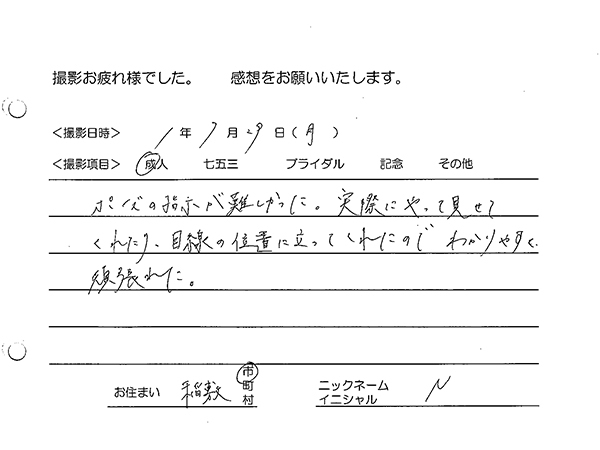 撮影お疲れ様でした。 感想をお願いいたします。
＜撮影日時＞ 1 年 7 月 29 日（月）
＜撮影項目＞ 成人 七五三 ブライダル 記念 その他
ポーズの指示が難しかった。実際にやって見せて
くれたり、目線の位置に立ってくれたので わかりやすく
頑張れた。
お住まい 稲敷 市町村 ニックネーム イニシャル N